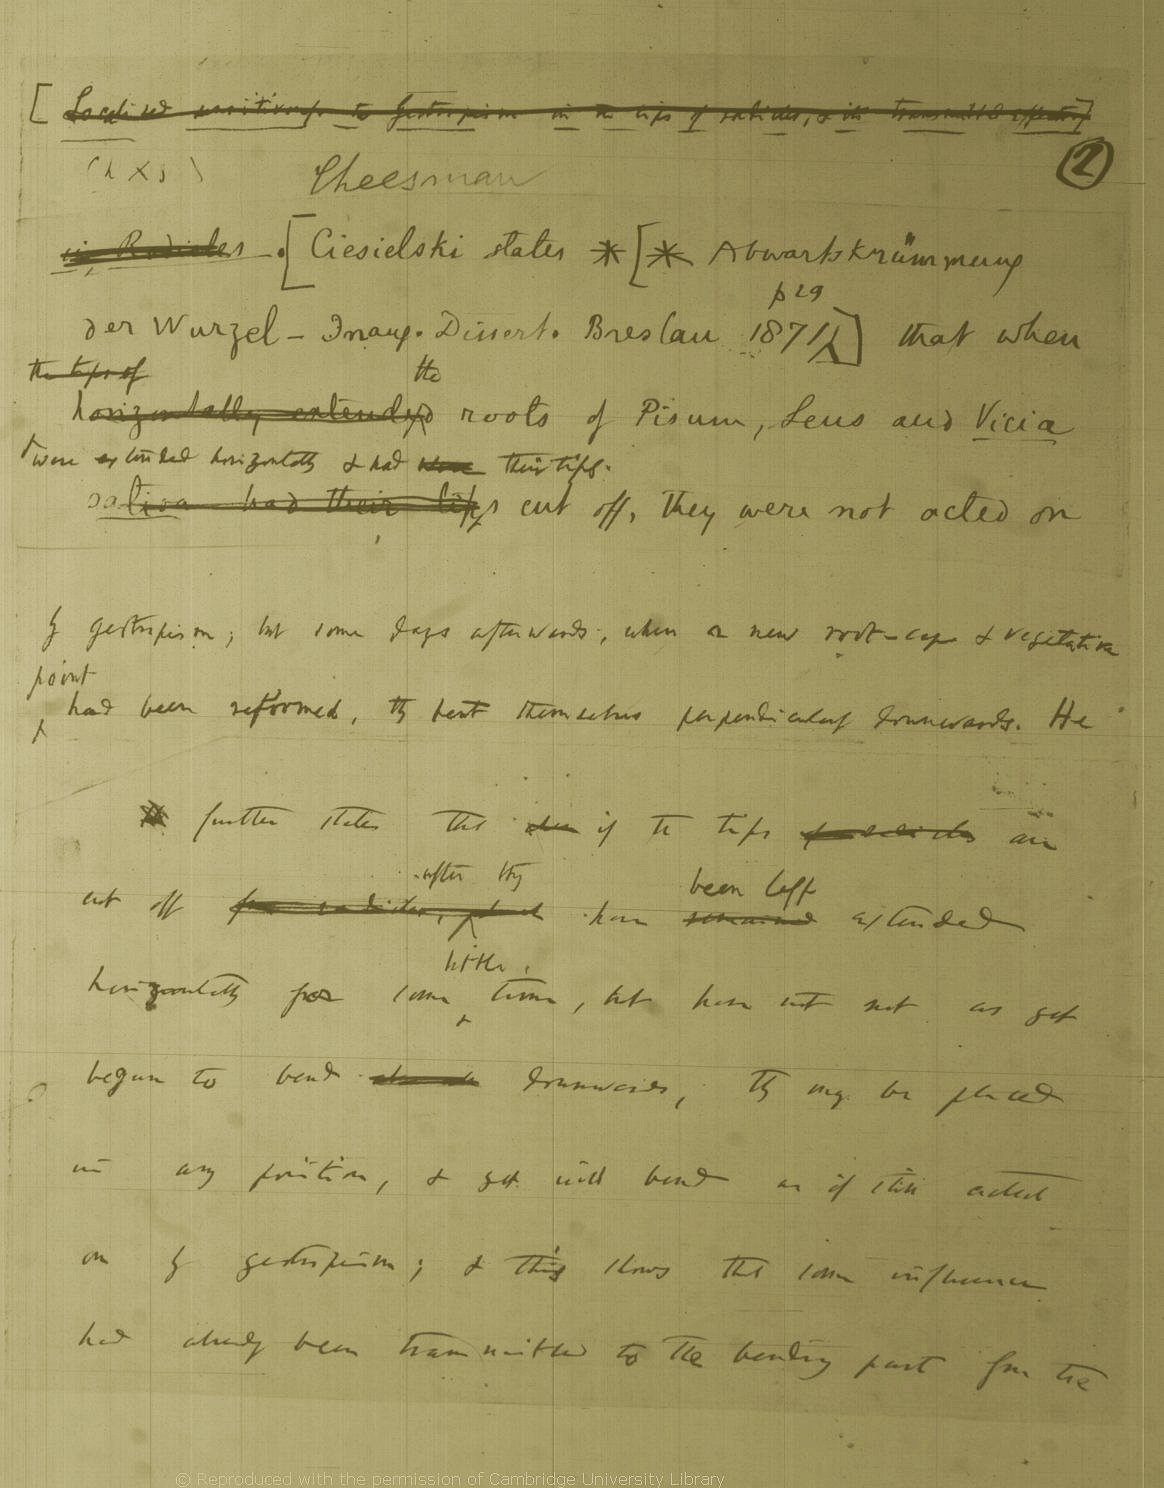 [Localised sensitiveness to Geotropism in the tips of radicles, & its transmitted effects]
2
Cheesman
in Radicles —. [Ciesielski states * [* Abwartskrümmung
p 29
der Wurzel — Inaug. Dissert. Breslau 1871] that when
the tips of the
horizontally extended roots of Pisum, Lens and Vicia
were extended horizontally & had their tips
sativa had their tips cut off, they were not acted on
by geotropism; but some days afterwards, when a new root-cap & vegetative
point
had been reformed, they bent themselves perpendicularly downwards. He
further states that if the tips of radicles are
after they been left
cut off from radicles, which have remained extended
little
horizontally for some time, but have not as yet
begun to bend downwards, they may be placed
in any position, & yet will bend as if still acted
on by geotropism; & this shows that some influence
had already been transmitted to the bending part from the
© Reproduced with the permission of Cambridge University Library